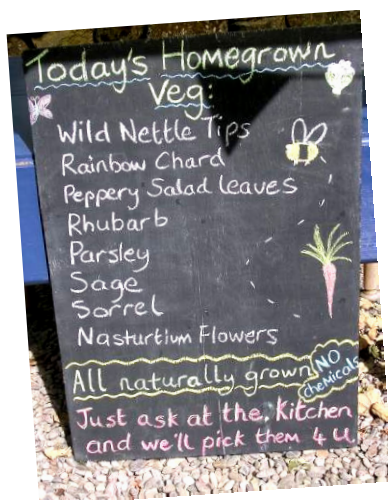 Today's Homegrown
Veg:
Wild Nettle Tips
Rainbow Chard
Peppery Salad leaves
Rhubarb
Parsley
Sage
Sorrel
Nasturtium Flowers
All naturally grown
NO
chemicals
Just ask at the Kitchen
and we'll pick them 4 U